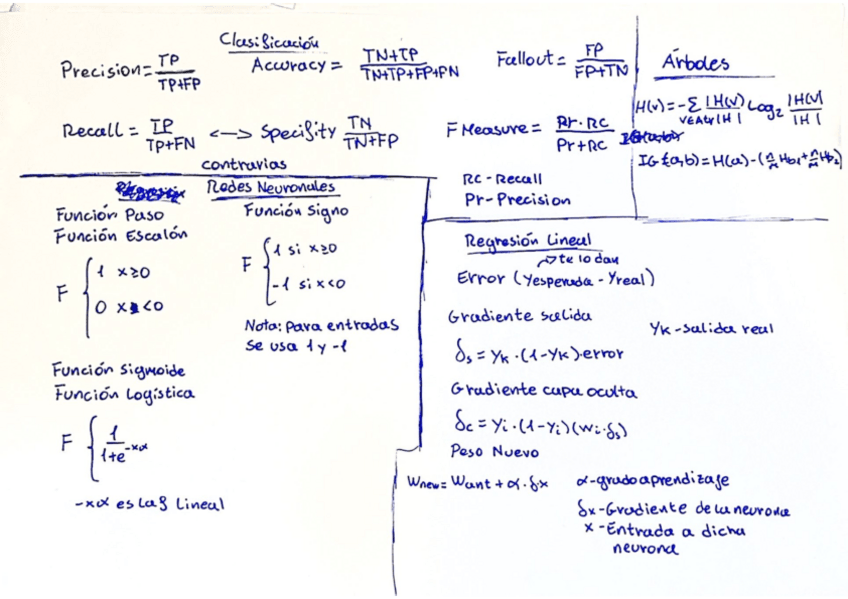 Clasificación
Precision = TP / TP+FP
Accuracy = TN+TP / TN+TP+FP+FN
Fallout = FP / FP+TN
Recall = TP / TP+FN <-> Specifity TN / TN+FP
contrarias
F Measure = Pr·RC / Pr+RC
RC - Recall
Pr - Precision
Árboles
H(v) = -Σ |H(v)| / |H| Log₂ |H(v)| / |H|
IG(a,b) = H(a) - (n/m Hb₁ + n/m Hb₂)
Redes Neuronales
Función Paso
Función Escalón
F { 1 x≥0
0 x<0
Función Signo
F { 1 si x≥0
-1 si x<0
Nota: para entradas
se usa 1 y -1
Función Sigmoide
Función Logística
F { 1 / 1+e^-xα
-xα es la f Lineal
Regresión Lineal
→ te lo dan
Error (Yesperada - Yreal)
Gradiente salida
YK - salida real
δs = YK·(1-YK)·error
Gradiente capa oculta
δc = Yi·(1-Yi)(wi·δs)
Peso Nuevo
Wnew = Want + α·δx
α - grado aprendizaje
δx - Gradiente de la neurona
x - Entrada a dicha
neurona